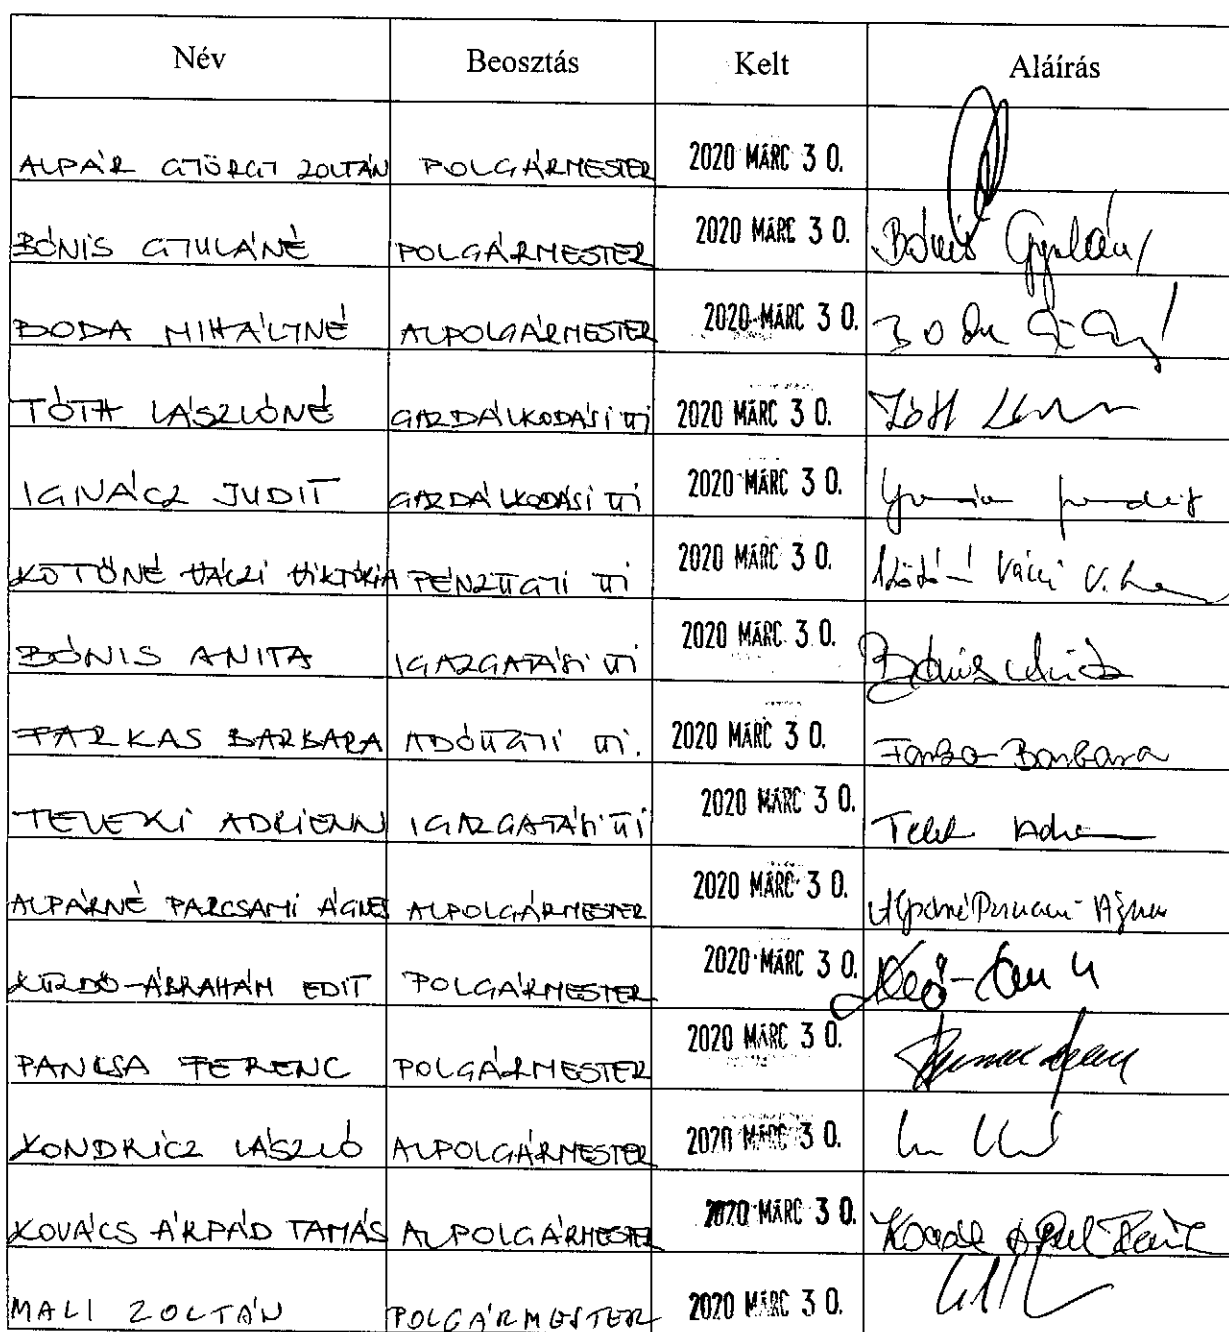 Név Beosztás Kelt Aláírás
ALPÁR GYÖRGY ZOLTÁN POLGÁRMESTER 2020 MÁRC 30.
BÓNIS GYULÁNÉ POLGÁRMESTER 2020 MÁRC 30. Bónis Gyuláné
BODA MIHÁLYNÉ ALPOLGÁRMESTER 2020 MÁRC 30. Boda
TÓTH LÁSZLÓNÉ GAZDÁLKODÁSI ÜI 2020 MÁRC 30. Tóth
IGNÁCZ JUDIT GAZDÁLKODÁSI ÜI 2020 MÁRC 30.
VÁCZI VIKTÓRIA PÉNZÜGYI ÜI 2020 MÁRC 30. Váczi V.
BÓNIS ANITA IGAZGATÁSI ÜI 2020 MÁRC 30. Bónis Anita
FARKAS BARBARA ADÓÜGYI ÜI. 2020 MÁRC 30. Farkas Barbara
TELEKI ADRIENN IGAZGATÁSI ÜI 2020 MÁRC 30.
ALPÁRNÉ PARCSAMI ÁGNES ALPOLGÁRMESTER 2020 MÁRC 30. Alpárné Parcsami Ágnes
KÜRDÖ-ÁBRAHÁM EDIT POLGÁRMESTER 2020 MÁRC 30.
PANCSA FERENC POLGÁRMESTER 2020 MÁRC 30.
KONDRICZ LÁSZLÓ ALPOLGÁRMESTER 2020 MÁRC 30.
KOVÁCS ÁRPÁD TAMÁS ALPOLGÁRMESTER 2020 MÁRC 30.
MALI ZOLTÁN POLGÁRMESTER 2020 MÁRC 30.